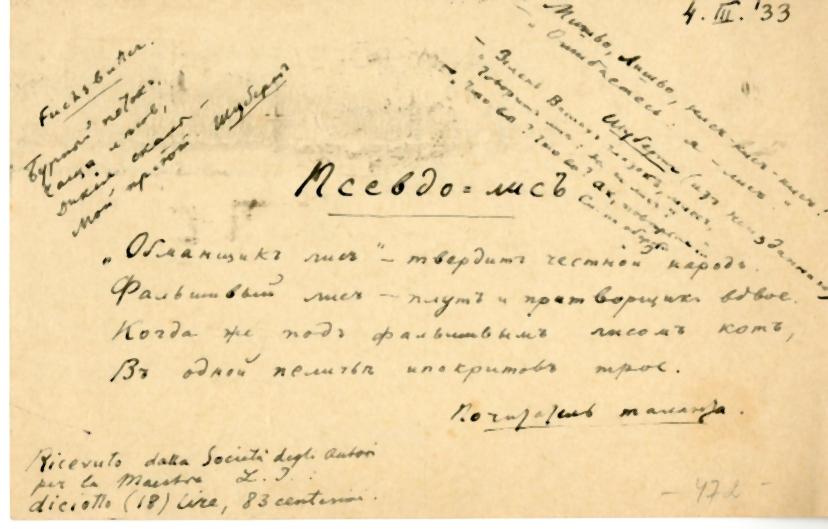 4. III. '33
Fuchsbau
Бурный потокъ,
Чаща лѣсовъ,
Дикія скалы —
Мой пріютъ
Шубертъ
Митьо, Лисьо, кисъ-кисъ-кисъ!
Ошибаетесь: я — лисъ.
Шубертъ (изъ неизданнаго)
Псевдо=лисъ
„Обманщикъ лисъ" — твердитъ честной народъ.
Фальшивый лисъ — плутъ и притворщикъ вдвое.
Когда же подъ фальшивымъ лисомъ котъ,
Въ одной пеличьѣ ипокритовъ трое.
Почитатель таланта.
Ricevuto dalla Società degli autori
per la Maestra L. I.
diciotto (18) lire, 83 centesimi.
— 472 —